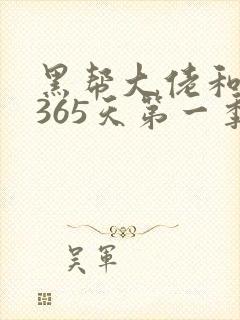 黑帮大佬和
365天第一季
吴軍